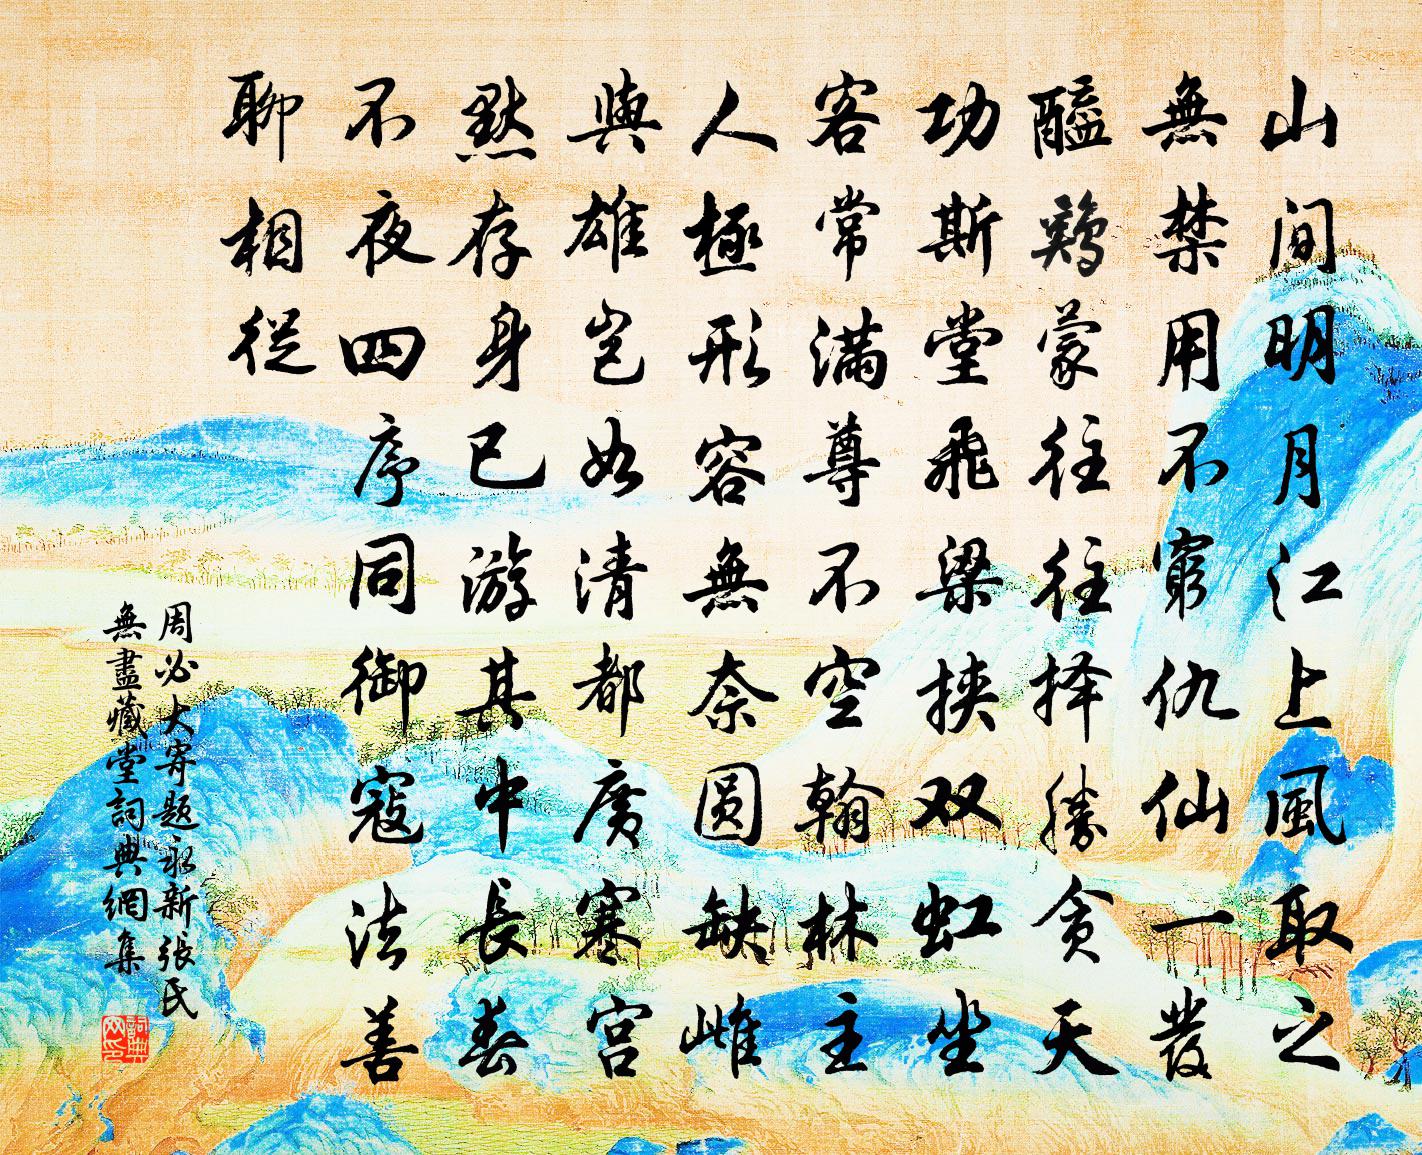 山间明月江上風取之
無禁用不窮仇仙一發
醯鶏蒙往往择勝贪天
功斯堂飛梁挟双虹坐
客常滿尊不空翰林主
人極形容無奈圆缺雌
與雄岂如清都廣寒宫
默存身已游其中長春
不夜四序同御寇法善
聊相從
周必大寄题永新張氏
無盡藏堂詞典網集
詞典网印